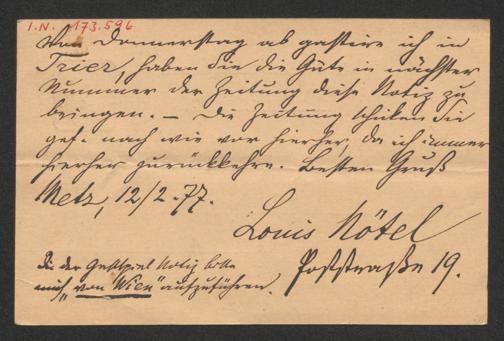 I.N. 173.596
Von Donnerstag ab gastire ich in
Trier, haben Sie die Güte in nächster
Nummer der Zeitung diese Notiz zu
bringen. – Die Zeitung schicken Sie
gef. nach wie vor hierher, da ich immer
hierher zurückkehre. Besten Gruß
Metz, 12/2. 77.
Louis Nötel
Poststraße 19.
In der Gastspiel Notiz bitte
mich "von Wien" aufzuführen.